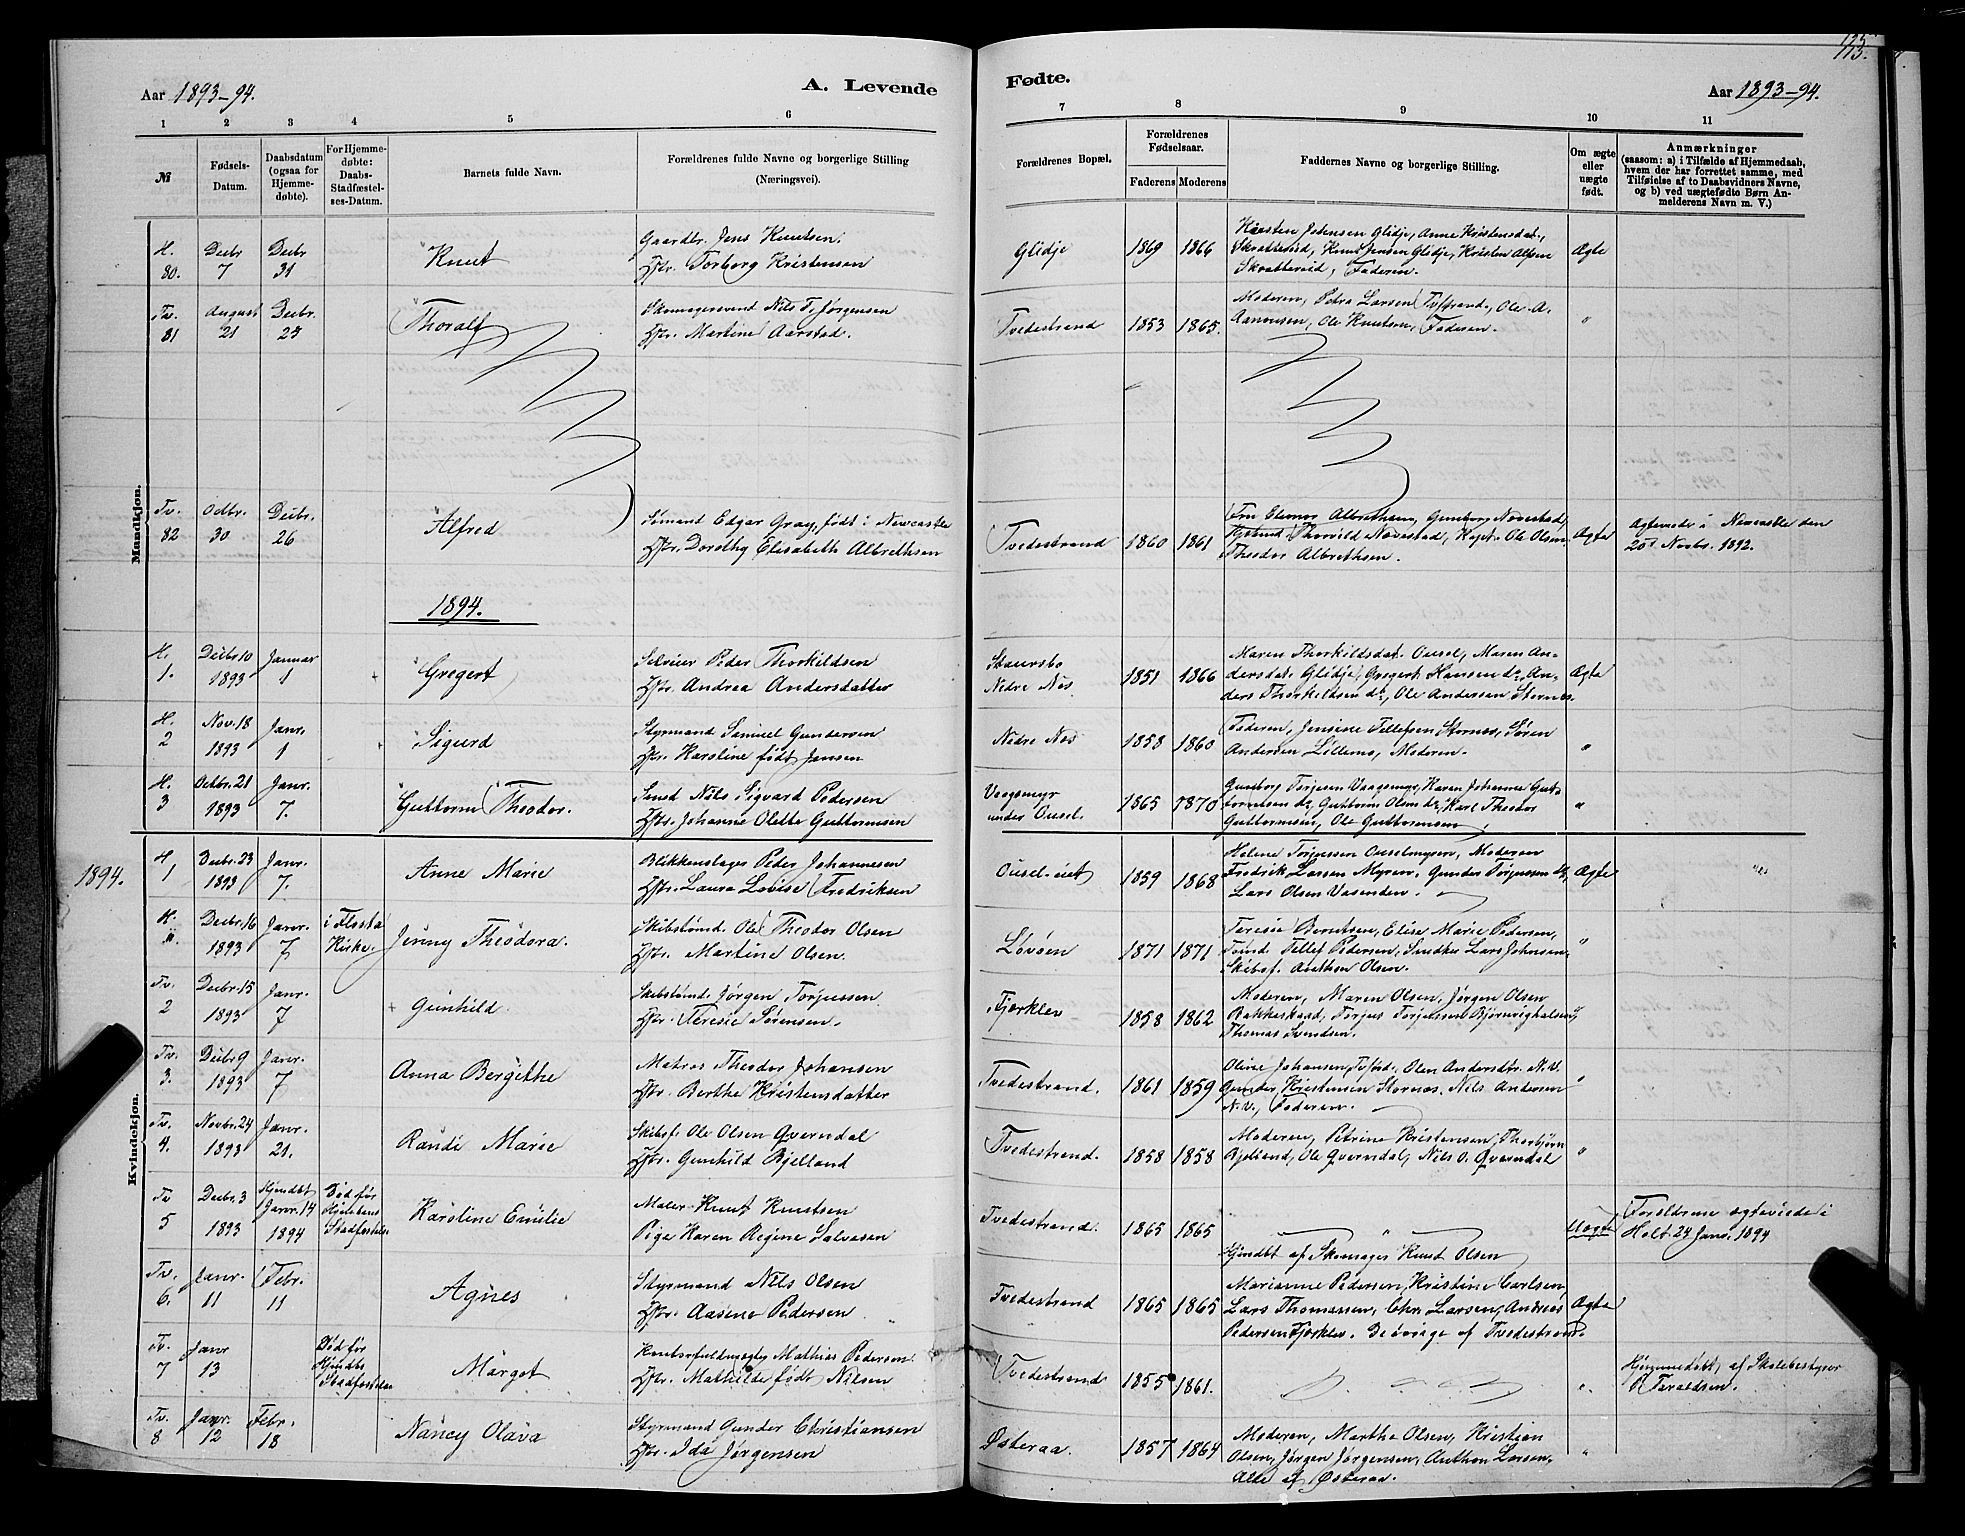 115.
113.
Aar 1893-94.
A. Levende
Fødte.
Aar 1893-94.
1 2 3 4 5 6 7 8 9 10 11
№
Fødsels-
Datum.
Daabsdatum
(ogsaa for
Hjemme-
døbte).
For Hjemme-
døbte:
Daabs-
Stadfæstel-
ses-Datum.
Barnets fulde Navn.
Forældrenes fulde Navne og borgerlige Stilling
(Næringsvei).
Forældrenes Bopæl.
Forældrenes
Fødselsaar.
Faderens Moderens
Faddernes Navne og borgerlige Stilling.
Om ægte
eller
uægte
født.
Anmærkninger
(saasom: a) i Tilfælde af Hjemmedaab,
hvem der har forrettet samme, med
Tilføielse af to Daabsvidners Navne,
og b) ved uægtefødte Børn An-
melderens Navn m. V.)
Mandkjøn.
H.
80.
Decbr
7
Decbr
31
Knut
Gaardbr. Jens Knutsen.
Hstr. Torborg Kristensen
Glidje
1869 1866
Karsten Johnsen Glidje, Anne Kristensdat.,
Skrattereid, Knut Jensen Glidje, Kristen Alfsen
Skrattereid, Faderen.
Ægte
Tv.
81
August
21
Decbr.
25
Thoralf
Skomagersvend Nils T. Jørgensen
Hstr. Martine Aarstad.
Tvedestrand
1853 1865.
Moderen, Petra Larsen Tvstrand., Ole A.
Aanonsen, Ole Knutsen, Faderen.
"
Tv.
82
Octbr.
30
Decbr.
26
Alfred
Sømand Edgar Gray, født i Newcastle
Hstr. Dorothy Elisabeth Albrethsen
Tvedestrand
1860 1861
Fru Elenor Albrethsen, Gunborg Navestad,
Thorvald Navestad, Kapt. Ole Olsen,
Theodor Albrethsen.
Ægte
Ægteviede i Newcastle den
20d Novbr. 1892.
1894.
H.
1.
Decbr 10
1893
Januar
1
Gregert
Selveier Peder Thorkildsen
Hstr. Andrea Andersdatter
Staursbo
Nedre Næs
1851 1866
Maren Thorkildsdat. Ousel, Maren An-
dersdat. Glidje, Gregert Hansen do, An-
ders Thorkildsen do, Ole Andersen Stornes.
Ægte
H.
2
Nov. 18
1893
Janr.
1
Sigurd
Styrmand Samuel Gundersen
Hstr. Karoline født Jansen
Nedre Næs
1858 1860
Faderen, Jensine Tellefsen Stornæs, Søren
Andersen Lillemo, Moderen.
"
H.
3
Octbr. 21
1893
Janr.
7.
Guttorm Theodor.
Smed Nils Sigvard Pedersen
Hstr. Johanne Olette Guttormsen
Vaagsmyr
under Ousel.
1865 1870
Gunborg Torjusen Vaagsmyr, Karen Johanne Gut-
tormsen do, Guttorm Olsen do, Karl Theodor
Guttormsen, Ole Guttormsen
"
Kvindekjøn.
1894.
H
1
Decbr. 23
1893
Janr.
7.
Anne Marie
Blikkenslager Peder Johannesen
Hstr. Laura Lovise Fredriksen
Ousel-eiet
1859 1868
Helene Torjussen Ouselmyren, Moderen
Fredrik Larsen Myren, Gunder Torjussen do,
Lars Olsen Vasenden.
Ægte
H.
"
Decbr. 16
1893
Janr.
7
i Flosta
Kirke.
Jenny Theodora.
Skibstømd. Ole Theodor Olsen
Hstr. Martine Olsen.
Løvøen
1871 1871
Teresie Berntsen, Elise Marie Pedersen,
Tømd. Tellef Pedersen, Snedker Lars Johnsen,
Skibsf. Anthon Olsen.
"
Tv.
2
Decbr. 15
1893
Janr.
7
Gunhild.
Skibstømd. Jørgen Torjussen.
Hstr. Teresie Sørensen.
Fjærklev
1858 1862
Moderen, Maren Olsen, Jørgen Olsen
Bakkeskaad, Torjus Torjussen Bjørnvighalsen,
Thomas Svendsen.
"
Tv.
3.
Decbr 9
1893
Janr.
7
Anna Bergithe
Matros Theodor Johansen
Hstr. Berthe Kristensdatter
Tvedestrand.
1861 1859
Olivie Johansen, Tvstrd. Olea Andersdtr. N.V.
Gunder Kristensen Stornæs, Nils Andersen
N.V., Faderen.
"
Tv.
4.
Novbr. 24
1893
Janr.
21.
Randi Marie
Skibsf. Ole Olsen Qverndal
Hstr. Gunhild Bjelland
Tvedestrand.
1858 1858
Moderen, Petrine Kristensen, Thorbjørn
Bjelland, Ole Qverndal, Nils O. Qverndal
"
Tv
5
Decbr. 3
1893
Hjmdbt
Janr. 14
1894
Død før
Stadfæstelse
Karoline Emilie
Maler Knut Knutsen
Pige Karen Regine Salvesen
Tvedestrand.
1865 1865
"
Hjmdbt af Skomager Knut Olsen
Uægte
Forældrene ægteviede i
Holt 24 Janr. 1894
Tv.
6.
Janr.
11
Febr.
11
Agnes
Styrmand Nils Olsen
Hstr. Aasine Pedersen
Tvedestrand
1865 1865
Marianne Pedersen, Kristine Carlsen
Lars Thomassen, Chr. Larsen, Andreas
Pedersen Fjærklev. De øvrige af Tvedestrand.
Ægte
Tv.
7
Janr
13
Død før
Hjmdbts
Stadfæstelse
Margot
Kontorfuldmægtig Mathias Pedersen.
Hstr. Mathilde født Nilsen
Tvedestrand
1855 1861.
"
Hjemmedøbt af Skolebestyrer
P. Taraldsen.
Tv.
8
Janr.
12
Febr.
18
Nancy Olava
Styrmand Gunder Christiansen
Hstr. Ida Jørgensen
Østeraa.
1857 1864
Moderen, Marthe Olsen, Kristian
Olsen, Jørgen Jørgensen, Anthon Larsen,
Alle af Østeraa.
"